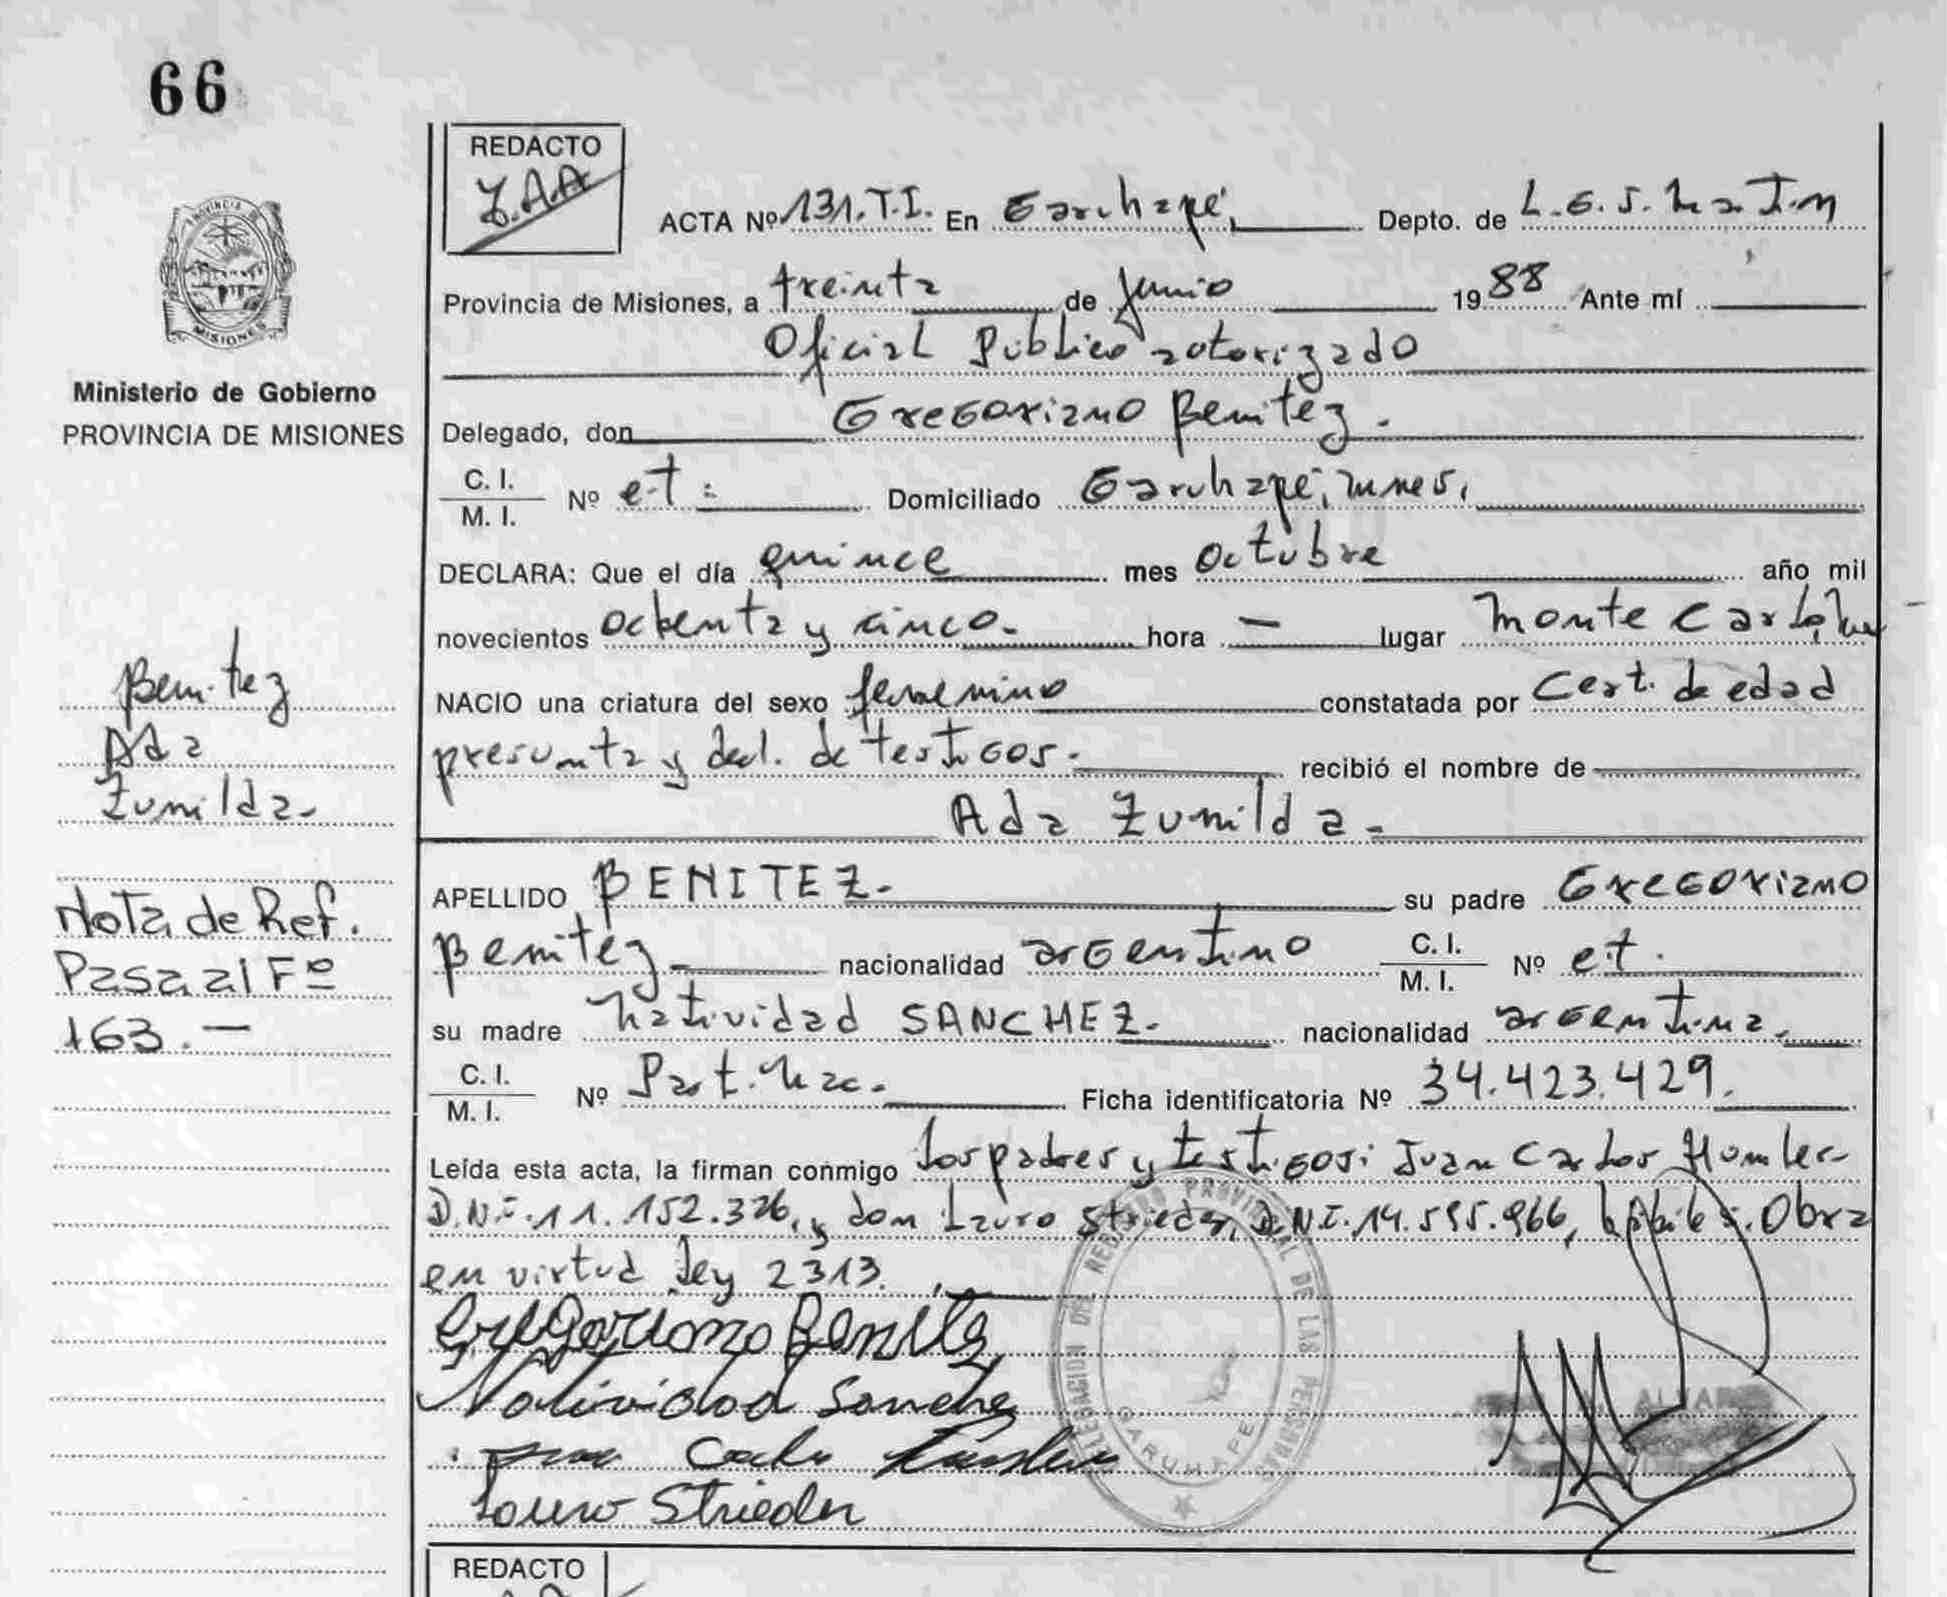 66
REDACTO
Z.A.A
ACTA Nº 131.T.I. En Garuhapé, Depto. de L.G.S.Martin
Provincia de Misiones, a treinta de junio 1988 Ante mí
Oficial Público autorizado
Delegado, don Gregoriano Benitez.
C. I.
M. I. Nº e.t: Domiciliado Garuhapé, mnes,
DECLARA: Que el día quince mes octubre año mil
novecientos ochenta y cinco. hora — lugar Monte Carlo,
NACIO una criatura del sexo femenino constatada por Cert. de edad
presunta y decl. de testigos. recibió el nombre de
Ada Zunilda.
APELLIDO BENITEZ. su padre Gregoriano
Benitez nacionalidad argentino C. I.
M. I. Nº e.t.
su madre Natividad SANCHEZ. nacionalidad argentina.
C. I.
M. I. Nº Part. Nac. Ficha identificatoria Nº 34.423.429.
Leída esta acta, la firman conmigo los padres y testigos: Juan Carlos
D.N.I. 11.152.326, y don Lauro Strieder, D.N.I. 14.595.966, Obra
en virtud ley 2313.
Gregoriano Benitez
Natividad Sanchez
Lauro Strieder
PROVINCIA DE
MISIONES
Ministerio de Gobierno
PROVINCIA DE MISIONES
Benitez
Ada
Zunilda.
Nota de Ref.
Pasa al Fº
163. —
DELEGACION DEL REGISTRO PROVINCIAL DE LAS PERSONAS
GARUHAPE
ALVAREZ
REDACTO